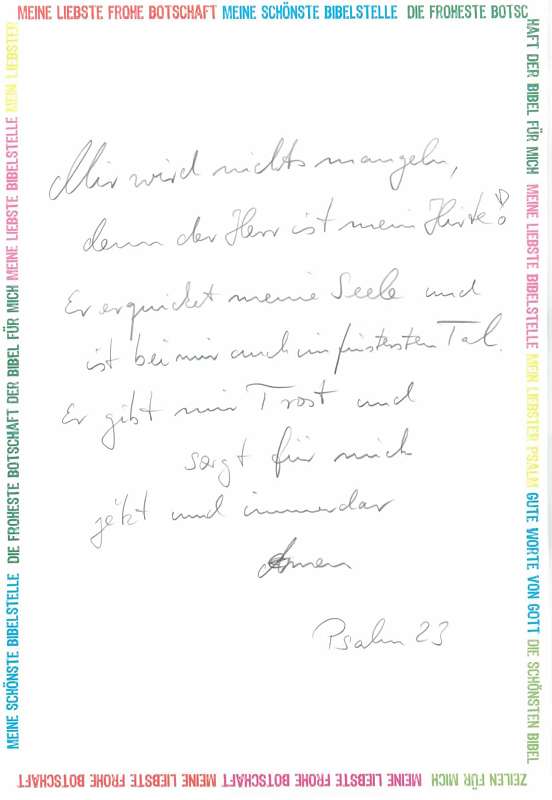 MEINE LIEBSTE FROHE BOTSCHAFT MEINE SCHÖNSTE BIBELSTELLE DIE FROHESTE BOTSC
HAFT DER BIBEL FÜR MICH MEINE LIEBSTE BIBELSTELLE MEIN LIEBSTER PSALM GUTE WORTE VON GOTT DIE SCHÖNSTEN BIBEL
ZEILEN FÜR MICH MEINE LIEBSTE FROHE BOTSCHAFT MEINE LIEBSTE FROHE BOTSCHAFT
MEINE SCHÖNSTE BIBELSTELLE DIE FROHESTE BOTSCHAFT DER BIBEL FÜR MICH MEINE LIEBSTE BIBELSTELLE MEIN LIEBSTER
Mir wird nichts mangeln,
denn der Herr ist mein Hirte!
Er erquicket meine Seele und
ist bei mir auch im finstersten Tal.
Er gibt mir Trost und
sorgt für mich
jetzt und immerdar
Amen
Psalm 23